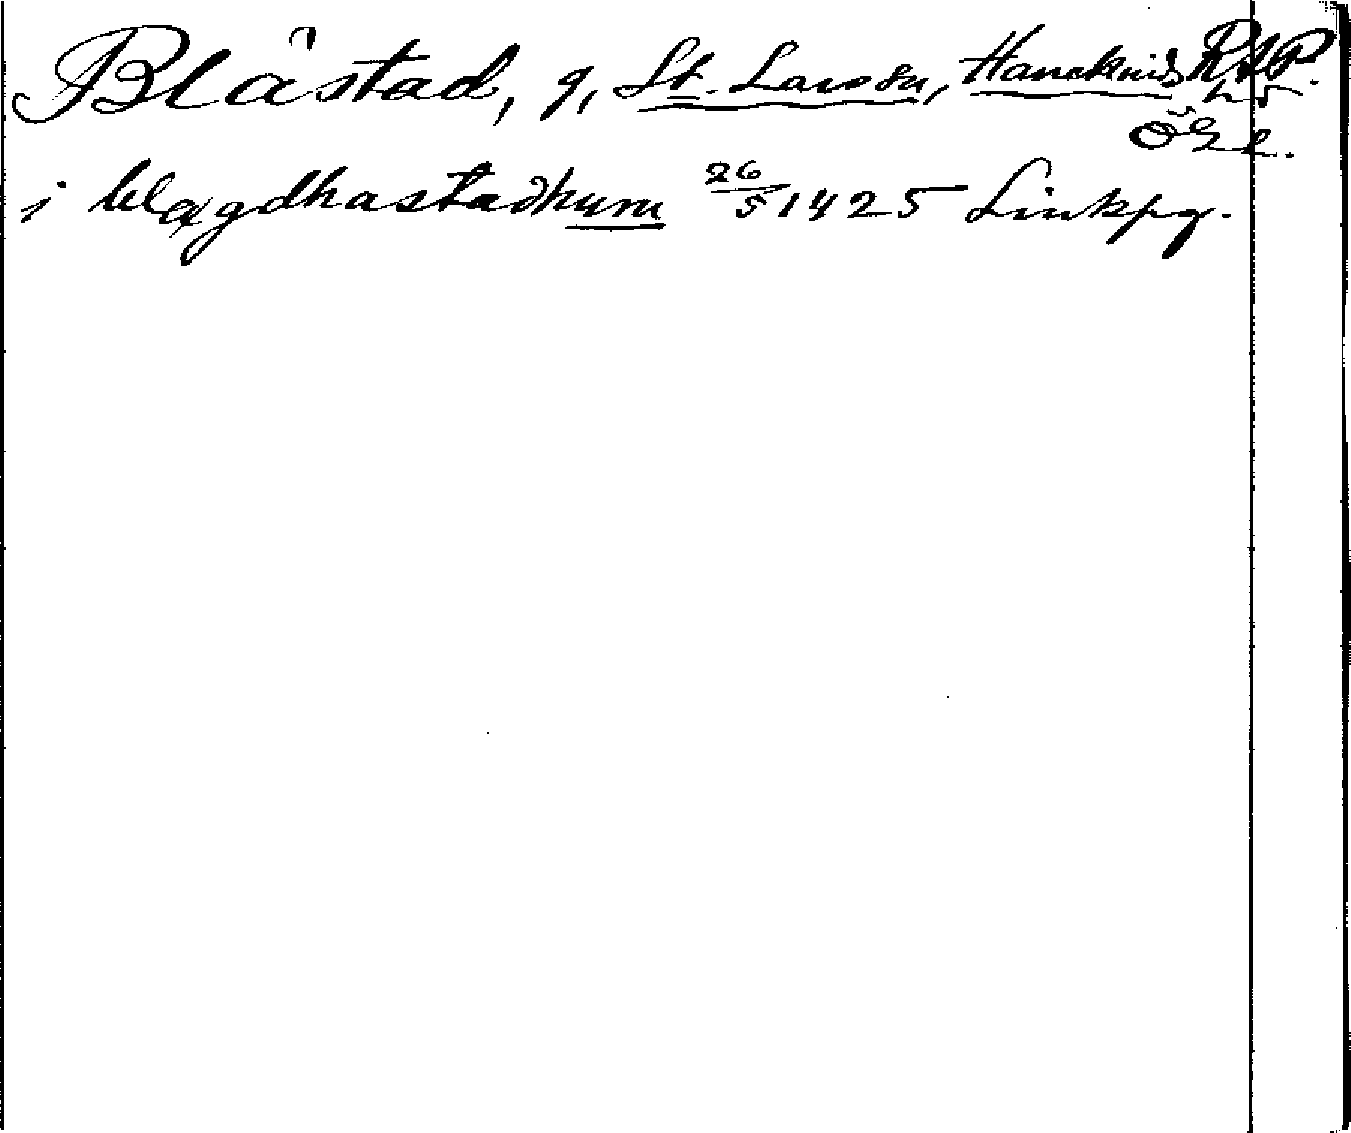 Blåstad, g, St. Lars sn, Hanekinds hd RAP.
ÖGL.
i blægdhastadhum 26/5 1425 Linkpg.